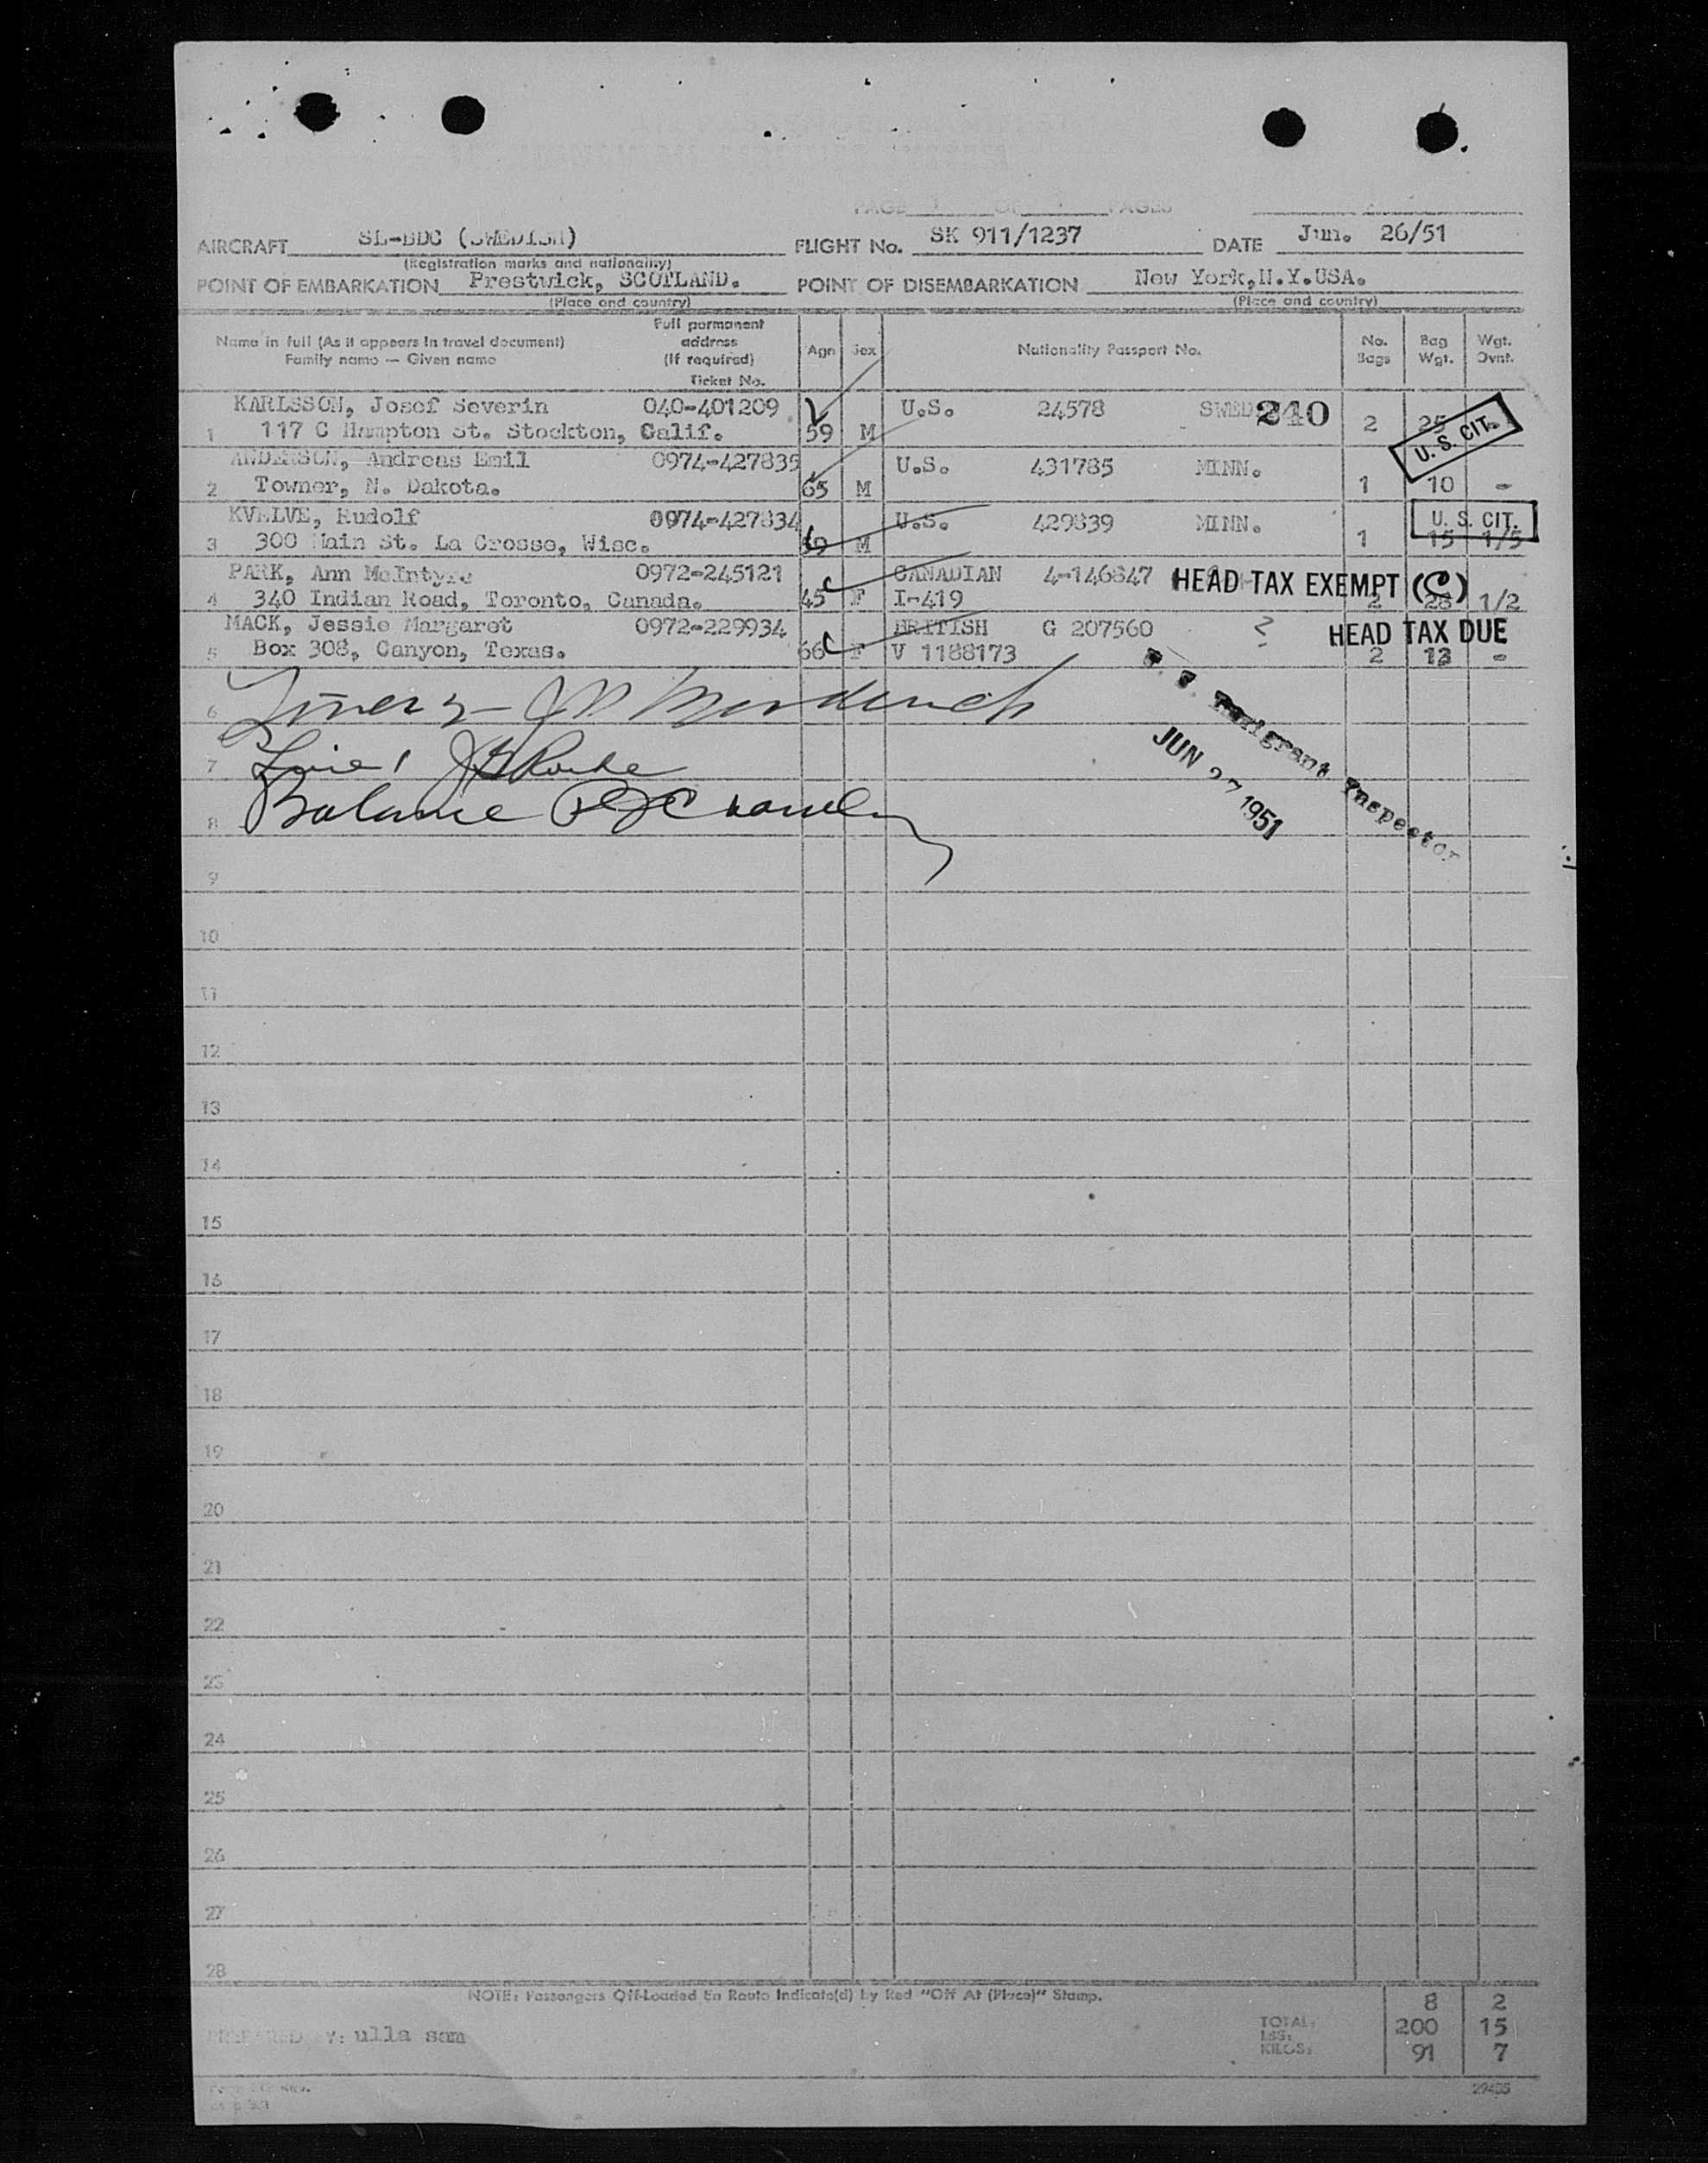 PAGE OF PAGES
AIRCRAFT SE-BDC (SWEDISH) FLIGHT No. SK 911/1237 DATE Jun. 26/51
(Registration marks and nationality)
POINT OF EMBARKATION Prestwick, SCOTLAND. POINT OF DISEMBARKATION New York,N.Y.USA.
(Place and country) (Place and country)
Name in full (As it appears in travel document) Family name — Given name
Full permanent address (If required) Ticket No.
Age Sex Nationality Passport No. No. Bags Bag Wgt. Wgt. Ovnt.
KARLSSON, Josef Severin 040-401209 U.S. 24578 SWED 240 2 25
1 117 C Hampton St. Stockton, Calif. 59 M U. S. CIT.
ANDERSON, Andreas Emil 0974-427835 U.S. 431785 MINN.
2 Towner, N. Dakota. 65 M 1 10 -
KVELVE, Rudolf 0974-427834 U.S. 429839 MINN. U. S. CIT.
3 300 Main St. La Crosse, Wisc. 59 M 1 15 1/5
PARK, Ann McIntyre 0972-245121 CANADIAN 4-146847 HEAD TAX EXEMPT (C)
4 340 Indian Road, Toronto, Canada. 45 C F I-419 2 28 1/2
MACK, Jessie Margaret 0972-229934 BRITISH G 207560 ? HEAD TAX DUE
5 Box 308, Canyon, Texas. 66 C F V 1188173 2 13 -
6
7
8 Balance
Immigrant Inspector
JUN 27 1951
9
10
11
12
13
14
15
16
17
18
19
20
21
22
23
24
25
26
27
28
NOTE: Passengers Off-Loaded En Route Indicate(d) by Red "Off At (Place)" Stamp.
8 2
PREPARED BY: ulla sam
TOTAL: LBS: 200 15
KILOS: 91 7